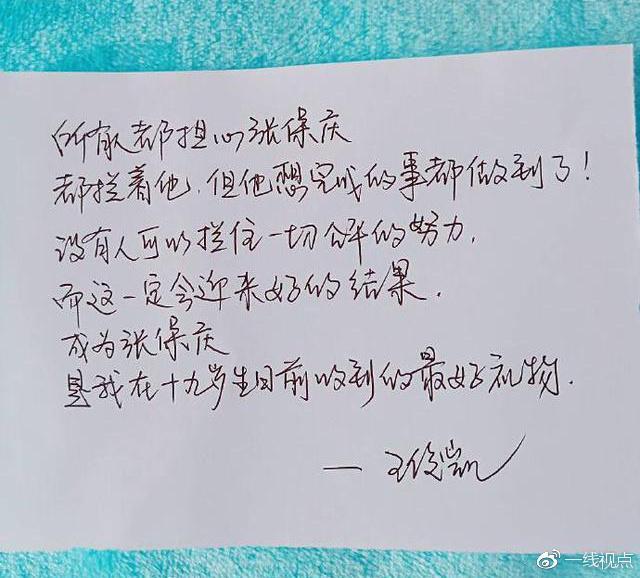 所有人都担心张保庆
都拦着他，但他想完成的事都做到了！
没有人可以拦住一切合乎的努力，
而这一定会迎来好的结果．
成为张保庆
是我在十九岁生日前收到的最好礼物．
— 王俊凯
一线视点